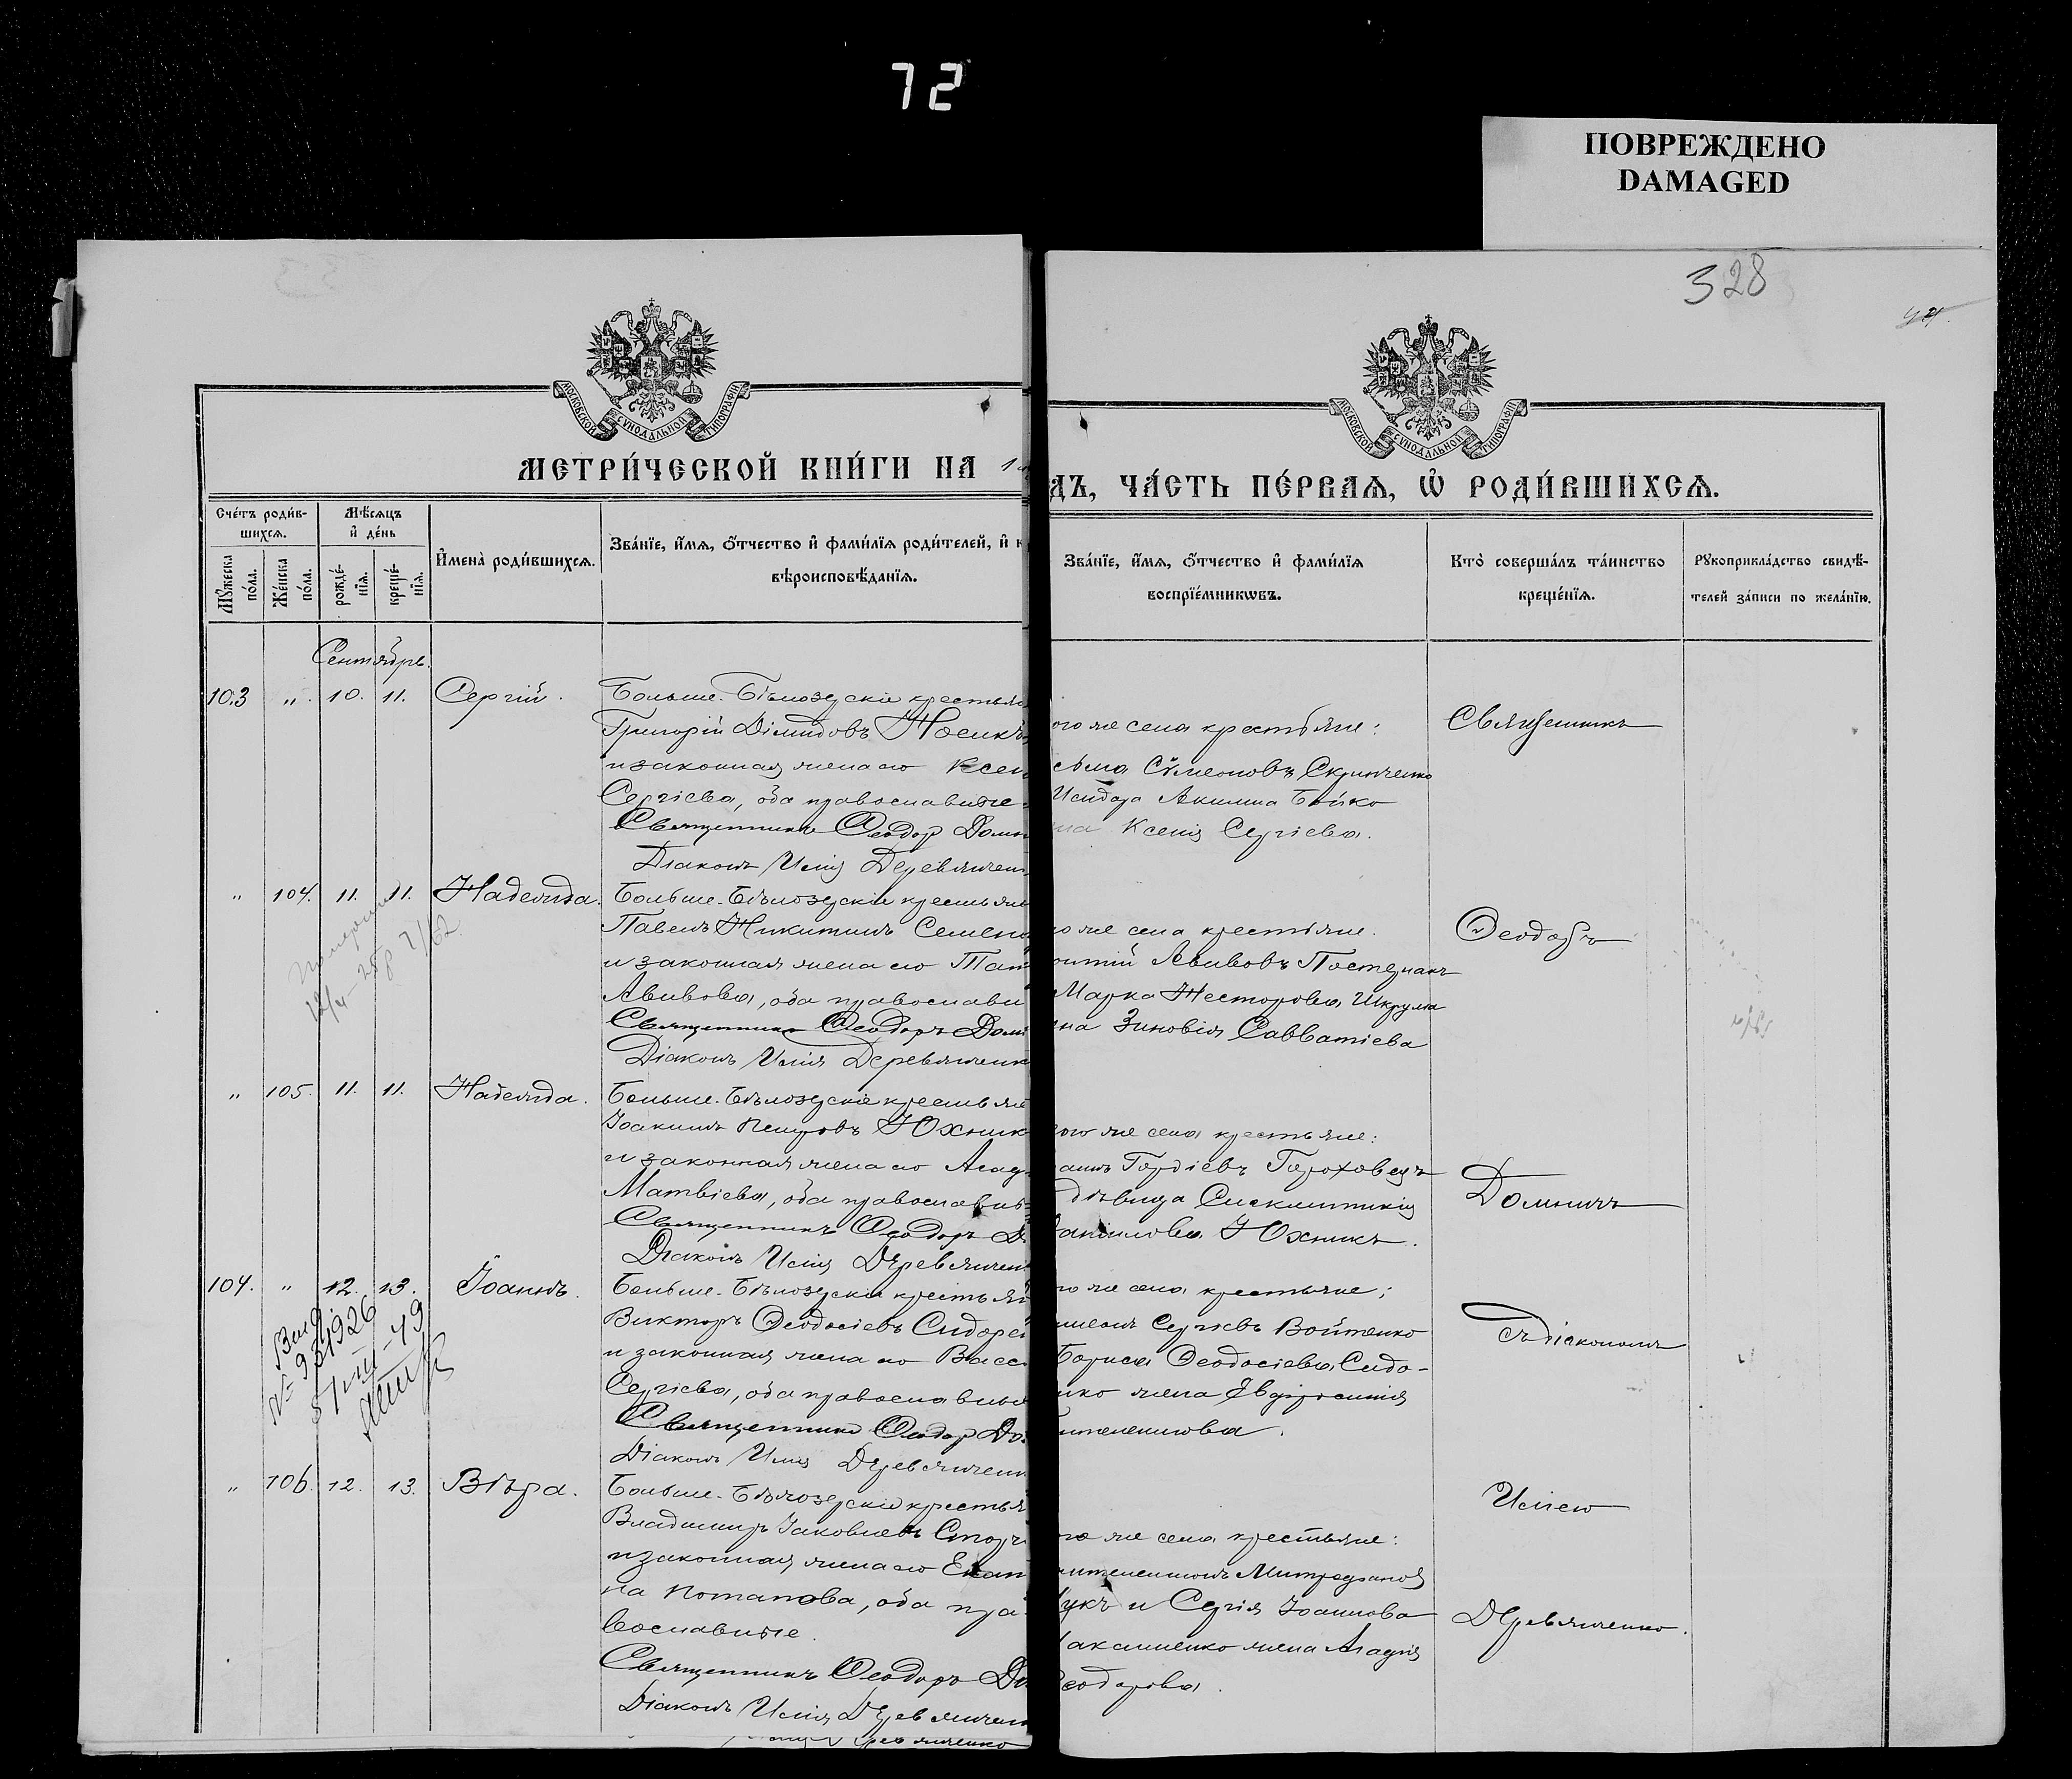 72
ПОВРЕЖДЕНО
DAMAGED
328
МОСКОВСКОЙ СѴНОДАЛЬНОЙ ТИПОГРАФІИ
МОСКОВСКОЙ СѴНОДАЛЬНОЙ ТИПОГРАФІИ
МЕТРИ́ЧЕСКОЙ КНИ́ГИ НА 1
ДЪ, ЧА́СТЬ ПЕ́РВАѦ, Ѡ҆ РОДИ́ВШИХСѦ.
Сче́тъ роди́в-
шихсѧ.
Мѣ́сѧцъ
и҆ де́нь
Мꙋ́жеска по́ла.
Же́нска по́ла.
рожде́-
нїѧ.
креще́-
нїѧ.
И҆мена̀ роди́вшихсѧ.
Зва́нїе, и҆́мѧ, ѻ҆́тчество и҆ фами́лїѧ роди́телей, и҆ к
вѣроисповѣ́данїѧ.
Зва́нїе, и҆́мѧ, ѻ҆́тчество и҆ фами́лїѧ
воспрїе́мникѡвъ.
Кто̀ соверша́лъ та́инство
креще́нїѧ.
Рꙋкоприкла́дство свидѣ́-
телей за́писи по жела́нїю.
Сентябрь.
103 " 10. 11. Сергій.
Больше-Бѣлозерскіе крестьян
Григорій Дімидовъ Носикъ
и законная жена его Ксен
Сергіева, оба православные
Священникъ Ѳеодоръ Домн
Діаконъ Илія Деревянчен
ого же села крестьяне:
Сѵмеоновъ Скрипченко
Исидора Акилина Бойко
Ксенія Сергіева.
Священникъ
" 104. 11. 11. Надежда.
Больше-Бѣлозерскіе крестьяне
Павелъ Никитинъ Семен
и законная жена его Тат
Авивова, оба православн
Священникъ Ѳеодоръ Домн
Діаконъ Илія Деревянченк
го же села крестьяне.
Авивовъ
Марка Несторова Шкрума
на Зиновія Савватіева
Ѳеодоръ
" 105. 11. 11. Надежда.
Больше-Бѣлозерскіе крестьяне
Іоакимъ Петровъ Юхник
и законная жена его Агаѳ
Матвіева, оба православн
Священникъ Ѳеодоръ Д
Діаконъ Илія Деревянчен
ого же села крестьяне:
Гордіевъ Гороховецъ
дѣвица Сисклитикія
Даніилова Юхникъ.
Домничъ
104. " 12. 13. Іоаннъ.
Больше-Бѣлозерскіе крестьян
Викторъ Ѳеодосіевъ Сидорен
и законная жена его Васс
Сергіева, оба православные
Священникъ Ѳеодоръ До
Діаконъ Илія Деревянчен
го же села крестьяне;
Сергіевъ Войтенко
Бориса Ѳеодосіева Сидо-
нко жена Евфросинія
съ діакономъ
" 106. 12. 13. Вѣра.
Больше-Бѣлозерскіе крестьян
Владиміръ Іаковлевъ Стор
и законная жена его Екат
на Потапова, оба пра-
вославные.
Священникъ Ѳеодоръ До
Діаконъ Илія Деревянчен
ого же села крестьяне:
Митрофанов
и Сергія Іоаннова
Максименко жена Агаѳія
Ѳеодорова.
Иліею
Деревянченко.